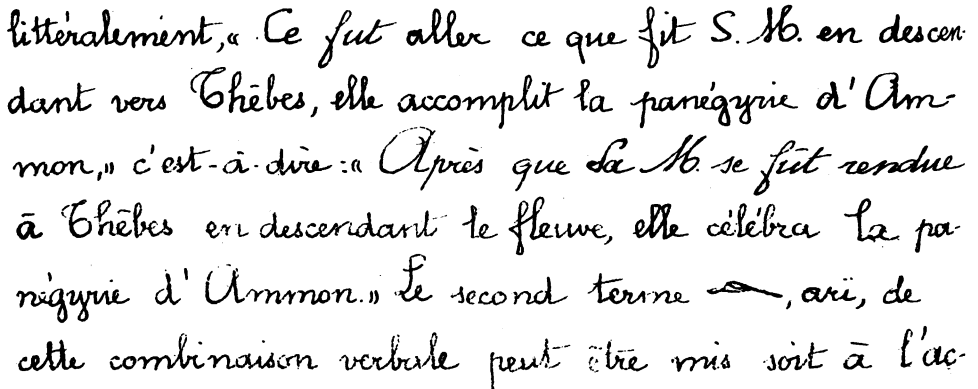 littéralement, « Ce fut aller ce que fit S. M. en descen-
dant vers Thèbes, elle accomplit la panégyrie d'Am-
mon, » c'est-à-dire : « Après que Sa M. se fût rendue
à Thèbes en descendant le fleuve, elle célébra la pa-
négyrie d'Ammon. » Le second terme , ari, de
cette combinaison verbale peut être mis soit à l'ac-